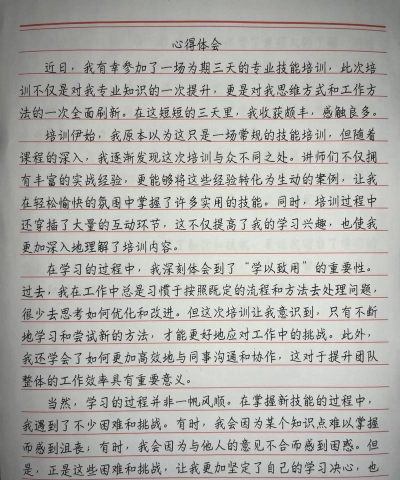 心得体会
近日，我有幸参加了一场为期三天的专业技能培训，此次培
训不仅是对我专业知识的一次提升，更是对我思维方式和工作方
法的一次全面刷新。在这短短的三天里，我收获颇丰，感触良多。
培训伊始，我原本以为这只是一场常规的技能培训，但随着
课程的深入，我逐渐发现这次培训与众不同之处。讲师们不仅拥
有丰富的实战经验，更能够将这些经验转化为生动的案例，让我
在轻松愉快的氛围中掌握了许多实用的技能。同时，培训过程中
还穿插了大量的互动环节，这不仅提高了我的学习兴趣，也使我
更加深入地理解了培训内容。
在学习的过程中，我深刻体会到了“学以致用”的重要性。
过去，我在工作中总是习惯于按照既定的流程和方法去处理问题，
很少去思考如何优化和改进。但这次培训让我意识到，只有不断
地学习和尝试新的方法，才能更好地应对工作中的挑战。此外，
我还学会了如何更加高效地与同事沟通和协作，这对于提升团队
整体的工作效率具有重要意义。
当然，学习的过程并非一帆风顺。在掌握新技能的过程中，
我遇到了不少困难和挑战。有时，我会因为某个知识点难以掌握
而感到沮丧；有时，我会因为与他人的意见不合而感到困惑。但
是，正是这些困难和挑战，让我更加坚定了自己的学习决心，也